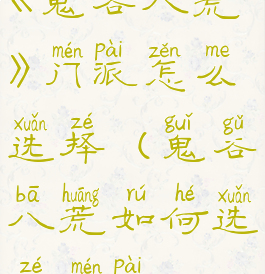 《鬼谷八荒
mén pài zěn me
》门派怎么
xuǎn zé guǐ gǔ
选择（鬼谷
bā huāng rú hé xuǎn
八荒如何选
zé mén pài